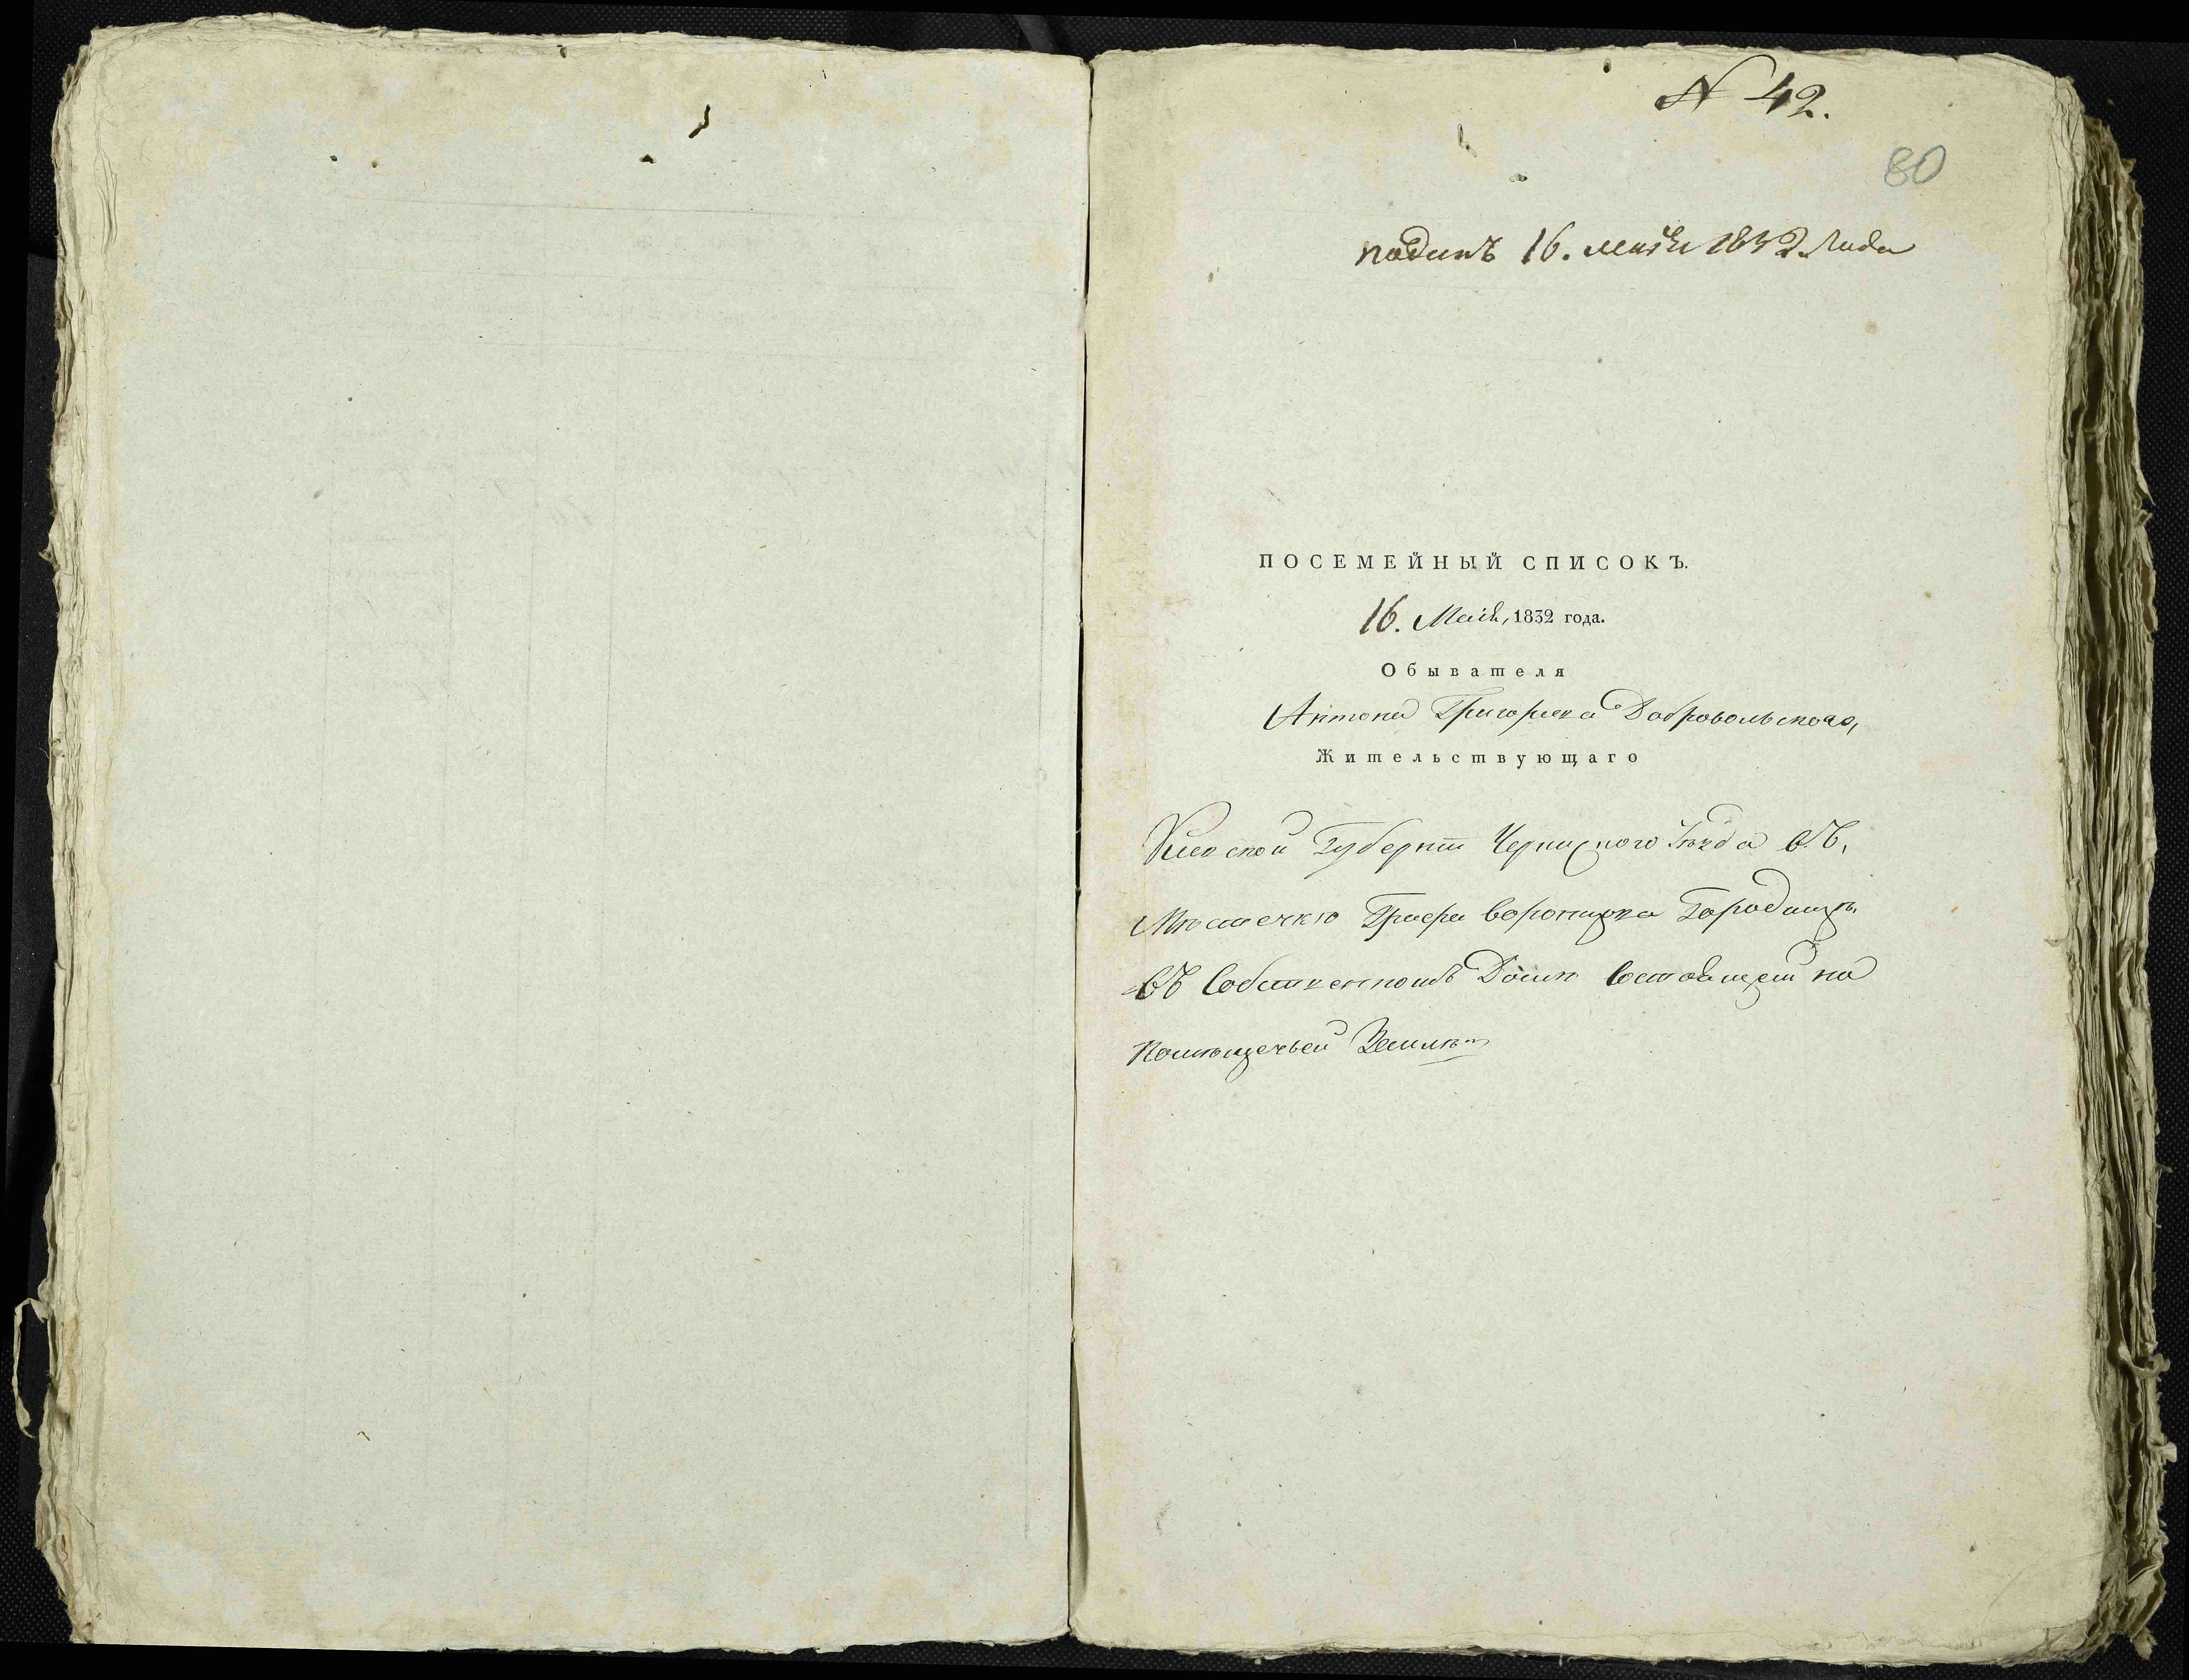 N 42.
80
поданъ 16. маія 1832. Года
ПОСЕМЕЙНЫЙ СПИСОКЪ.
16. Маія, 1832 года.
Обывателя
Антона Григорьева Добровольского,
Жительствующаго
Киевской Губерніи Черкаского Уѣзда въ,
Мѣстечкѣ Графа Воронцова Городищѣ,
въ Собственномъ Домѣ состоящем на
Помѣщечьей Землѣ